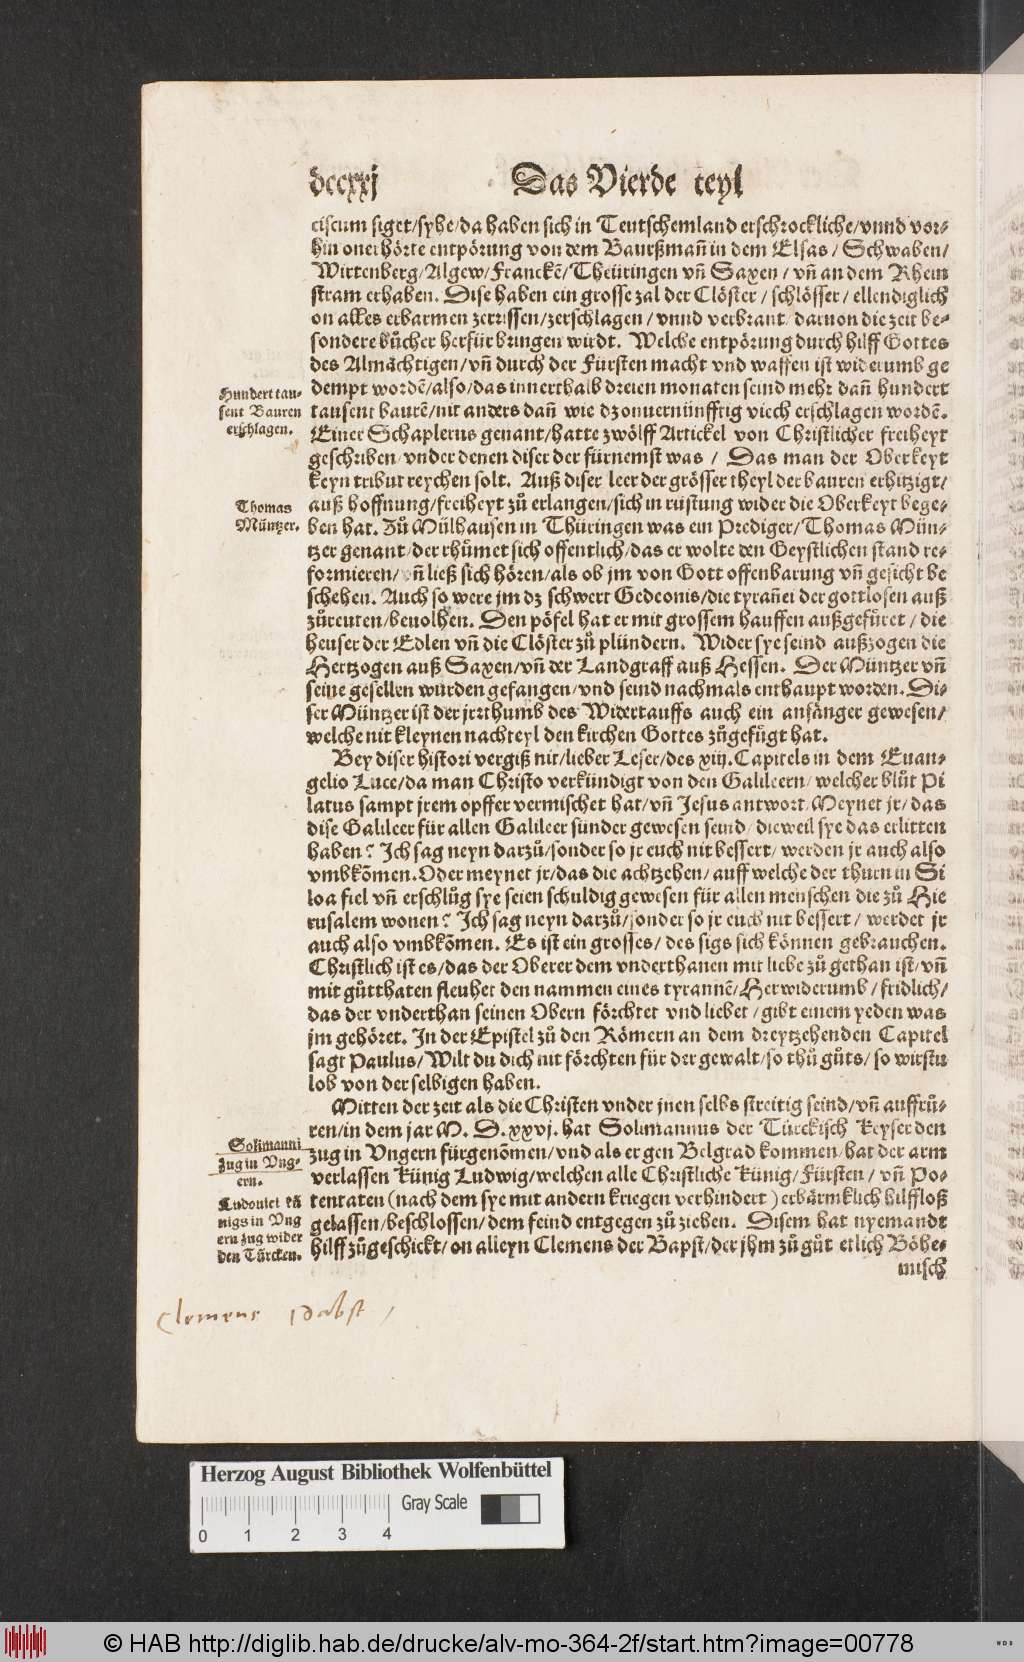 dccxxj Das Vierde teyl
ciscum siget/syhe/da haben sich in Teutschemland erschrockliche/vnnd vor-
hin onerhörte entpörung von dem Baurßmañ in dem Elsas/ Schwaben/
Wirtenberg/Algew/Franckẽ/Theüringen vñ Saxen/ vñ an dem Rhein
stram erhaben. Dise haben ein grosse zal der Clöster/ schlösser/ ellendiglich
on alles erbarmen zerrissen/zerschlagen/ vnnd verbrant/daruon die zeit be-
sondere bůcher herfür bringen würdt. Welche entpörung durch hilff Gottes
des Almächtigen/vñ durch der Fürsten macht vnd waffen ist widerumb ge
dempt wordẽ/also/das innerthalb dreien monaten seind mehr dañ hundert
Hundert tau-
sent Bauren
erschlagen.
tausent baurẽ/nit anders dañ wie dz onuernünfftig viech erschlagen wordẽ.
Einer Schaplerus genant/hatte zwölff Artickel von Christlicher freiheyt
geschriben/vnder denen diser der fürnemst was/ Das man der Oberkeyt
keyn tribut reychen solt. Auß diser leer der grösser theyl der bauren erhitzigt/
auß hoffnung/freiheyt zů erlangen/sich in rüstung wider die Oberkeyt bege-
Thomas
Müntzer.
ben hat. Zů Mülhausen in Thüringen was ein Prediger/Thomas Mün-
tzer genant/der rhůmet sich offentlich/das er wolte den Geystlichen stand re-
formieren/vñ ließ sich hören/als ob jm von Gott offenbarung vñ gesicht be
schehen. Auch so were jm dz schwert Gedeonis/die tyrañei der gottlosen auß
zůreuten/beuolhen. Den pöfel hat er mit grossem hauffen außgefůret/ die
heuser der Edlen vñ die Clöster zů plündern. Wider sye seind außzogen die
Hertzogen auß Saxen/vñ der Landgraff auß Hessen. Der Müntzer vñ
seine gesellen wurden gefangen/vnd seind nachmals enthaupt worden. Di-
ser Müntzer ist der jrrthumb des Widertauffs auch ein anfänger gewesen/
welche nit kleynen nachteyl den kirchen Gottes zůgefůgt hat.
Bey diser histori vergiß nit/lieber Leser/des xiij. Capitels in dem Euan-
gelio Luce/da man Christo verkündigt von den Galileern/welcher blůt Pi
latus sampt jrem opffer vermischet hat/vñ Jesus antwort/Meynet jr/das
dise Galileer für allen Galileer sünder gewesen seind/dieweil sye das erlitten
haben? Ich sag neyn darzů/sonder so jr euch nit bessert/werden jr auch also
vmbkõmen. Oder meynet jr/das die achtzehen/auff welche der thurn in Si
loa fiel vñ erschlůg sye seien schuldig gewesen für allen menschen die zů Hie
rusalem wonen? Ich sag neyn darzů/sonder so jr euch nit bessert/ werdet jr
auch also vmbkõmen. Es ist ein grosses/des sigs sich können gebrauchen.
Christlich ist es/das der Oberer dem vnderthanen mit liebe zů gethan ist/vñ
mit gůtthaten fleuhet den nammen eines tyrannẽ/Herwiderumb/fridlich/
das der vnderthan seinen Obern förchtet vnd liebet/gibt einem yeden was
jm gehöret. In der Epistel zů den Römern an dem dreytzehenden Capitel
sagt Paulus/Wilt du dich nit förchten für der gewalt/so thů gůts/so wirstu
lob von der selbigen haben.
Mitten der zeit als die Christen vnder jnen selbs streitig seind/vñ auffrů-
ren/in dem jar M. D. xxvj. hat Solimannus der Türckisch Keyser den
Solimanni
zug in Vng-
ern.
zug in Vngern fürgenõmen/vnd als er gen Belgrad kommen/hat der arm
verlassen Künig Ludwig/welchen alle Christliche Künig/Fürsten/ vñ Po-
Ludouici kü
nigs in Vng
ern zug wider
den Türcken.
tentaten (nach dem sye mit andern kriegen verhindert) erbärmklich hilffloß
gelassen/beschlossen/dem feind entgegen zů ziehen. Disem hat nyemandt
hilff zůgeschickt/on alleyn Clemens der Bapst/der jhm zů gůt etlich Böhe-
misch
Clemens Pabst/
Herzog August Bibliothek Wolfenbüttel
0 1 2 3 4 Gray Scale
© HAB http://diglib.hab.de/drucke/alv-mo-364-2f/start.htm?image=00778